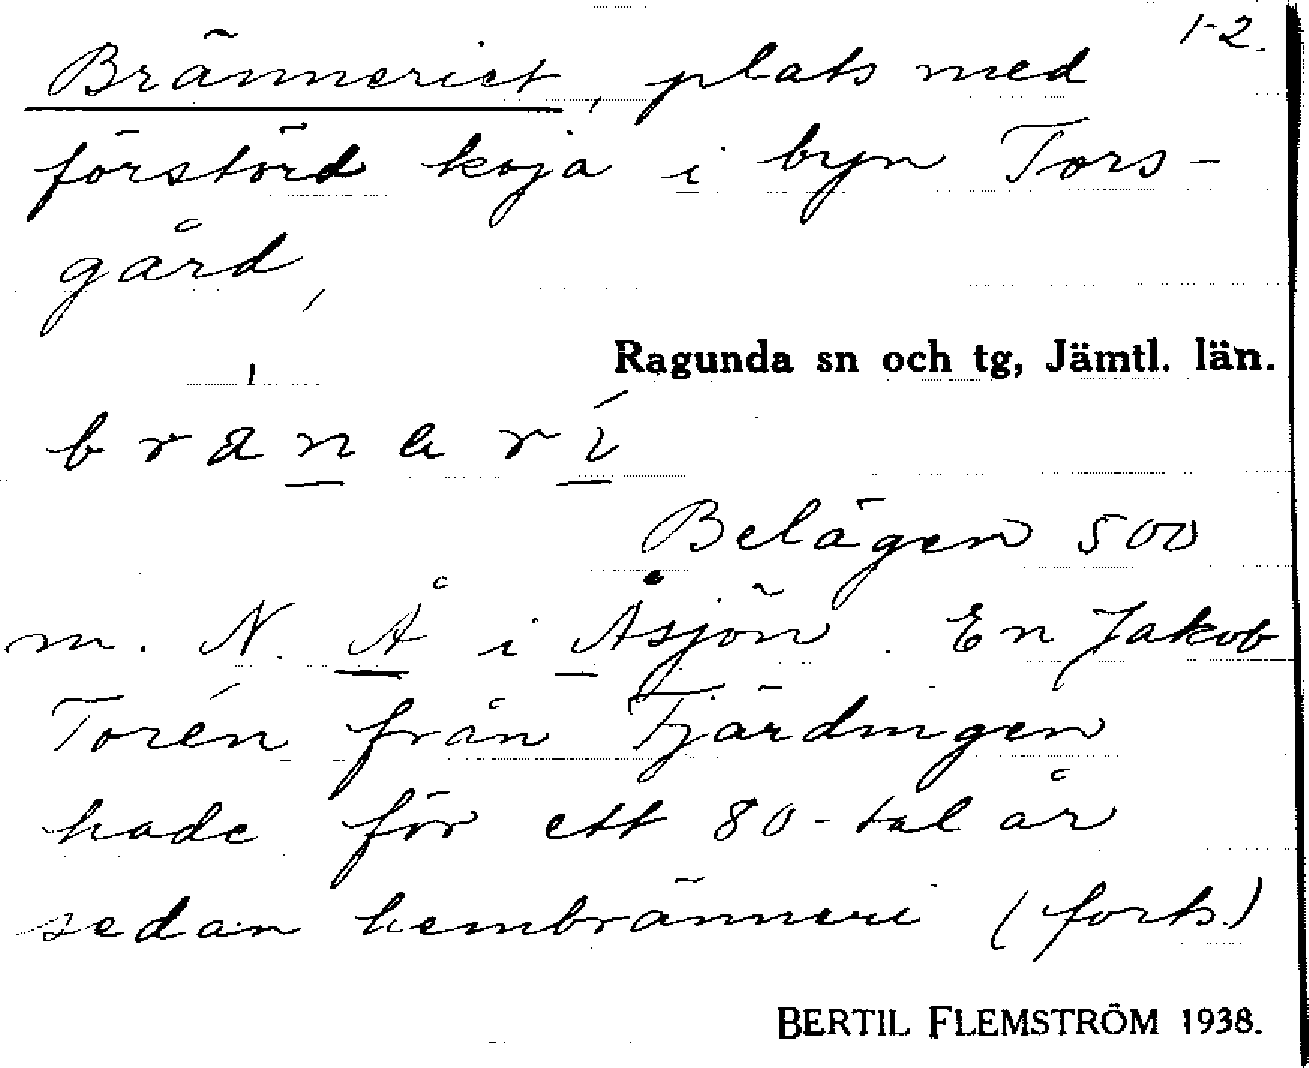 1-2.
Bränneriet, plats med
förstörd koja i byn Tors-
gård,
Ragunda sn och tg, Jämtl. län.
Belägen 500
m. N. Å i Åsjön. En Jakob
Torén från Fjärdingen
hade för ett 80-tal år
sedan hembränneri (forts.)
BERTIL FLEMSTRÖM 1938.